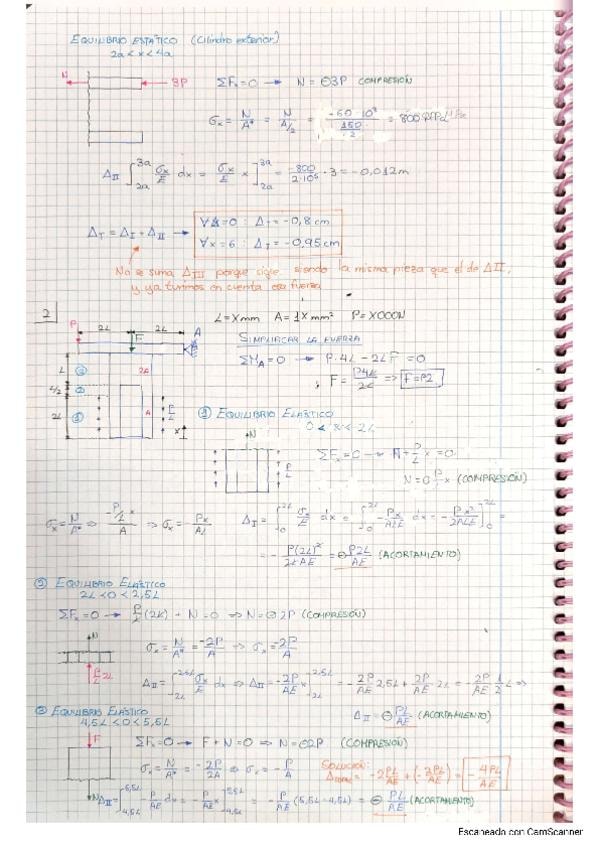 EQUILIBRIO ESTÁTICO (Cilindro exterior)
2a < x < 4a
N 3P ΣFx = 0 → N = ⊖3P COMPRESIÓN
σx = N/A* = N/A/2 = -60·10³/(150/2) = -800
ΔII ∫2a^3a σx/E dx = σx/E x]2a^3a = -800/2·10⁵ · 3 = -0,012m
ΔT = ΔI + ΔII → ∀x=0 : ΔT = -0,8 cm
∀x = 6 : ΔT = -0,95 cm
No se suma ΔIII porque sigue siendo la misma pieza que el de ΔII,
y ya tuvimos en cuenta esa fuerza
2 L = Xmm A = 1Xmm² P = X000N
P 2L 2L A
F
SIMPLIFICAR LA FUERZA
ΣMA = 0 → P·4L - 2LF = 0
F = P4L/2L => F = P2
L 2A
L/2
2L A P/L x
① EQUILIBRIO ELÁSTICO
0 < x < 2L
N P/L
ΣFx = 0 → N + P/L x = 0
N = ⊖ P/L x (COMPRESIÓN)
σx = N/A* ⇒ -P/L x/A ⇒ σx = -Px/AL
ΔI = ∫0^2L σx/E dx = ∫0^2L -Px/ALE dx = -Px²/2ALE]0^2L =
= -P(2L)²/2LAE = ⊖P2L/AE (ACORTAMIENTO)
EQUILIBRIO ELÁSTICO
2L < 0 < 2,5L
ΣFx = 0 → P/L (2L) + N = 0 ⇒ N = ⊖2P (COMPRESIÓN)
N P/L 2L
σx = N/A* = -2P/A ⇒ σx = -2P/A
ΔII = ∫2L^2,5L σx/E dx ⇒ ΔII = -2P/AE x]2L^2,5L = -2P/AE 2,5L + 2P/AE 2L = -2P/AE 1/2 L ⇒
ΔII = ⊖PL/AE (ACORTAMIENTO)
EQUILIBRIO ELÁSTICO
4,5L < 0 < 5,5L
F N
ΣFx = 0 → F + N = 0 ⇒ N = ⊖2P (COMPRESIÓN)
σx = N/A* = -2P/2A ⇒ σx = -P/A
SOLUCIÓN:
ΔTOTAL = -2PL/AE + (-2PL/AE) = -4PL/AE
ΔII = ∫4,5L^5,5L -P/AE dx = -P/AE x]4,5L^5,5L = -P/AE (5,5L - 4,5L) = ⊖ PL/AE (ACORTAMIENTO)
Escaneado con CamScanner